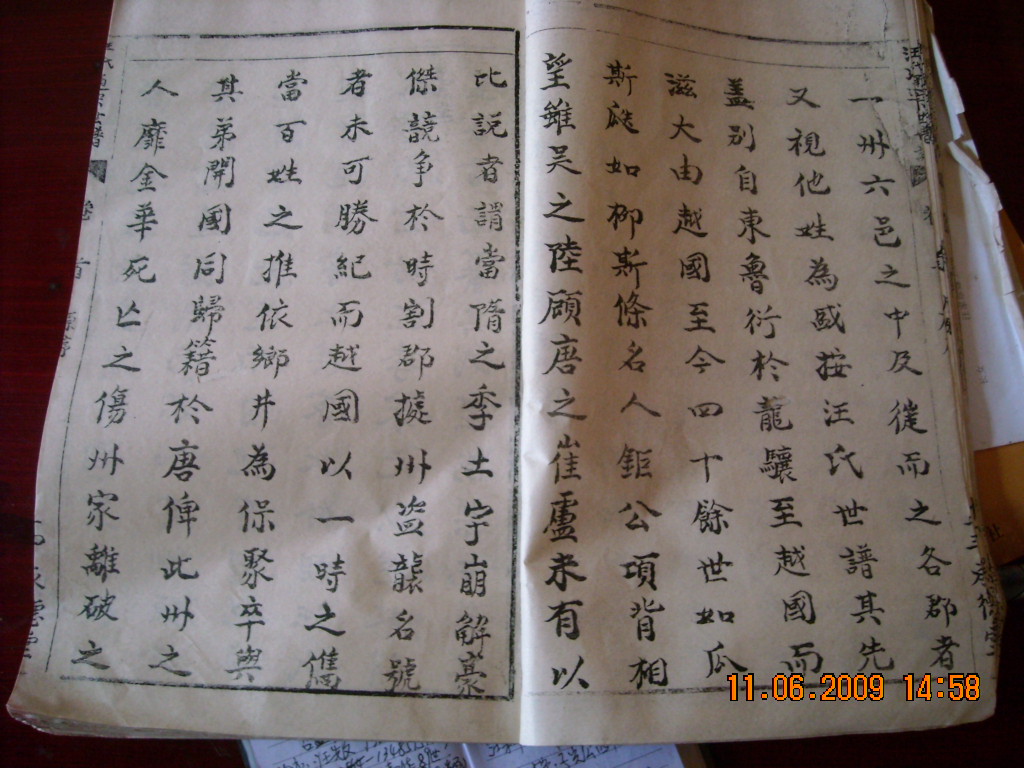 一州六邑之中及徙而之各郡者
又視他姓為盛按汪氏世譜其先
蓋別自東魯衍於龍驤至越國而
滋大由越國至今四十餘世如瓜
斯瓞如柳斯條名人鉅公項背相
望雖吳之陸顧唐之崔盧未有以
比說者謂當隋之季土宇崩解豪
傑競爭於時割郡據州盜竊名號
者未可勝紀而越國以一時之儁
當百姓之推依鄉井為保聚卒與
其弟開國同歸籍於唐俾此州之
人靡金華死亡之傷州家離破之
卷
首
11.06.2009 14:58